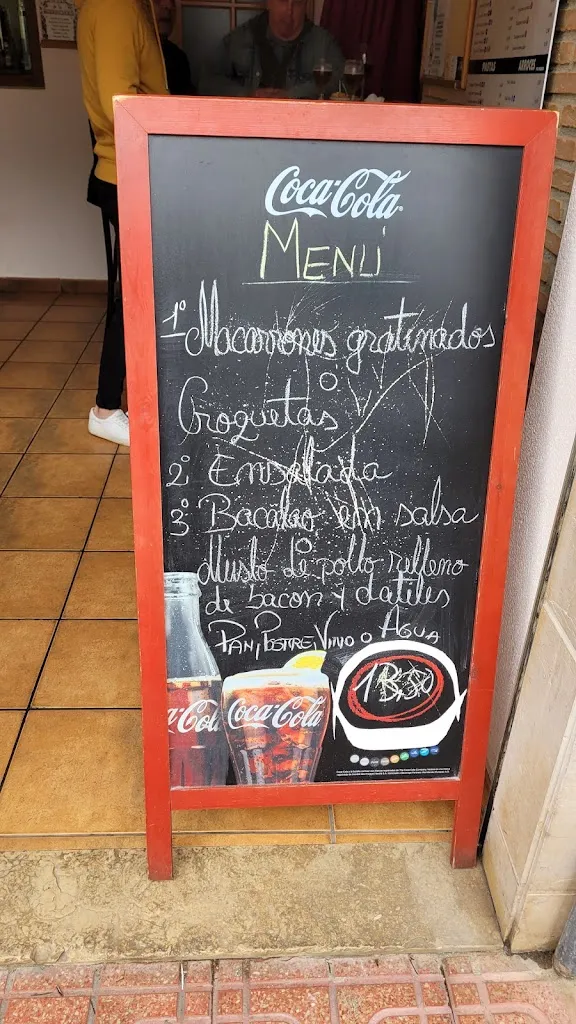 Coca-Cola
MENÚ
1º Macarrones gratinados
o
Croquetas
2º Ensalada
3º Bacalao em salsa
o
Muslo de pollo relleno
de bacon y datiles
PAN, POSTRE, VINO O AGUA
Coca-Cola
PASTAS
ARROCES